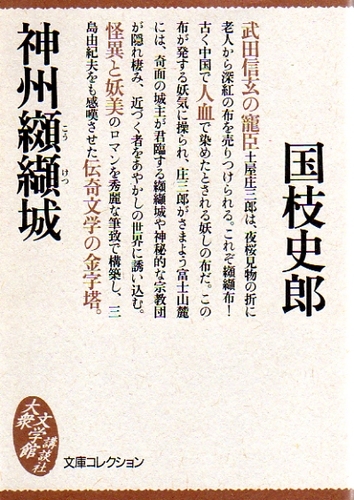 国枝史郎
武田信玄の寵臣土屋庄三郎は、夜桜見物の折に
老人から深紅の布を売りつけられる。これぞ纐纈布!
古く中国で人血で染めたとされる妖しの布だ。この
布が発する妖気に操られ、庄三郎がさまよう富士山麓
には、奇面の城主が君臨する纐纈城や神秘的な宗教団
が隠れ棲み、近づく者をあやしの世界に誘い込む。
怪異と妖美のロマンを秀麗な筆致で構築し、三
島由紀夫をも感嘆させた伝奇文学の金字塔。
神州纐纈城
こうけつ
大衆
文学館
講談社
文庫コレクション